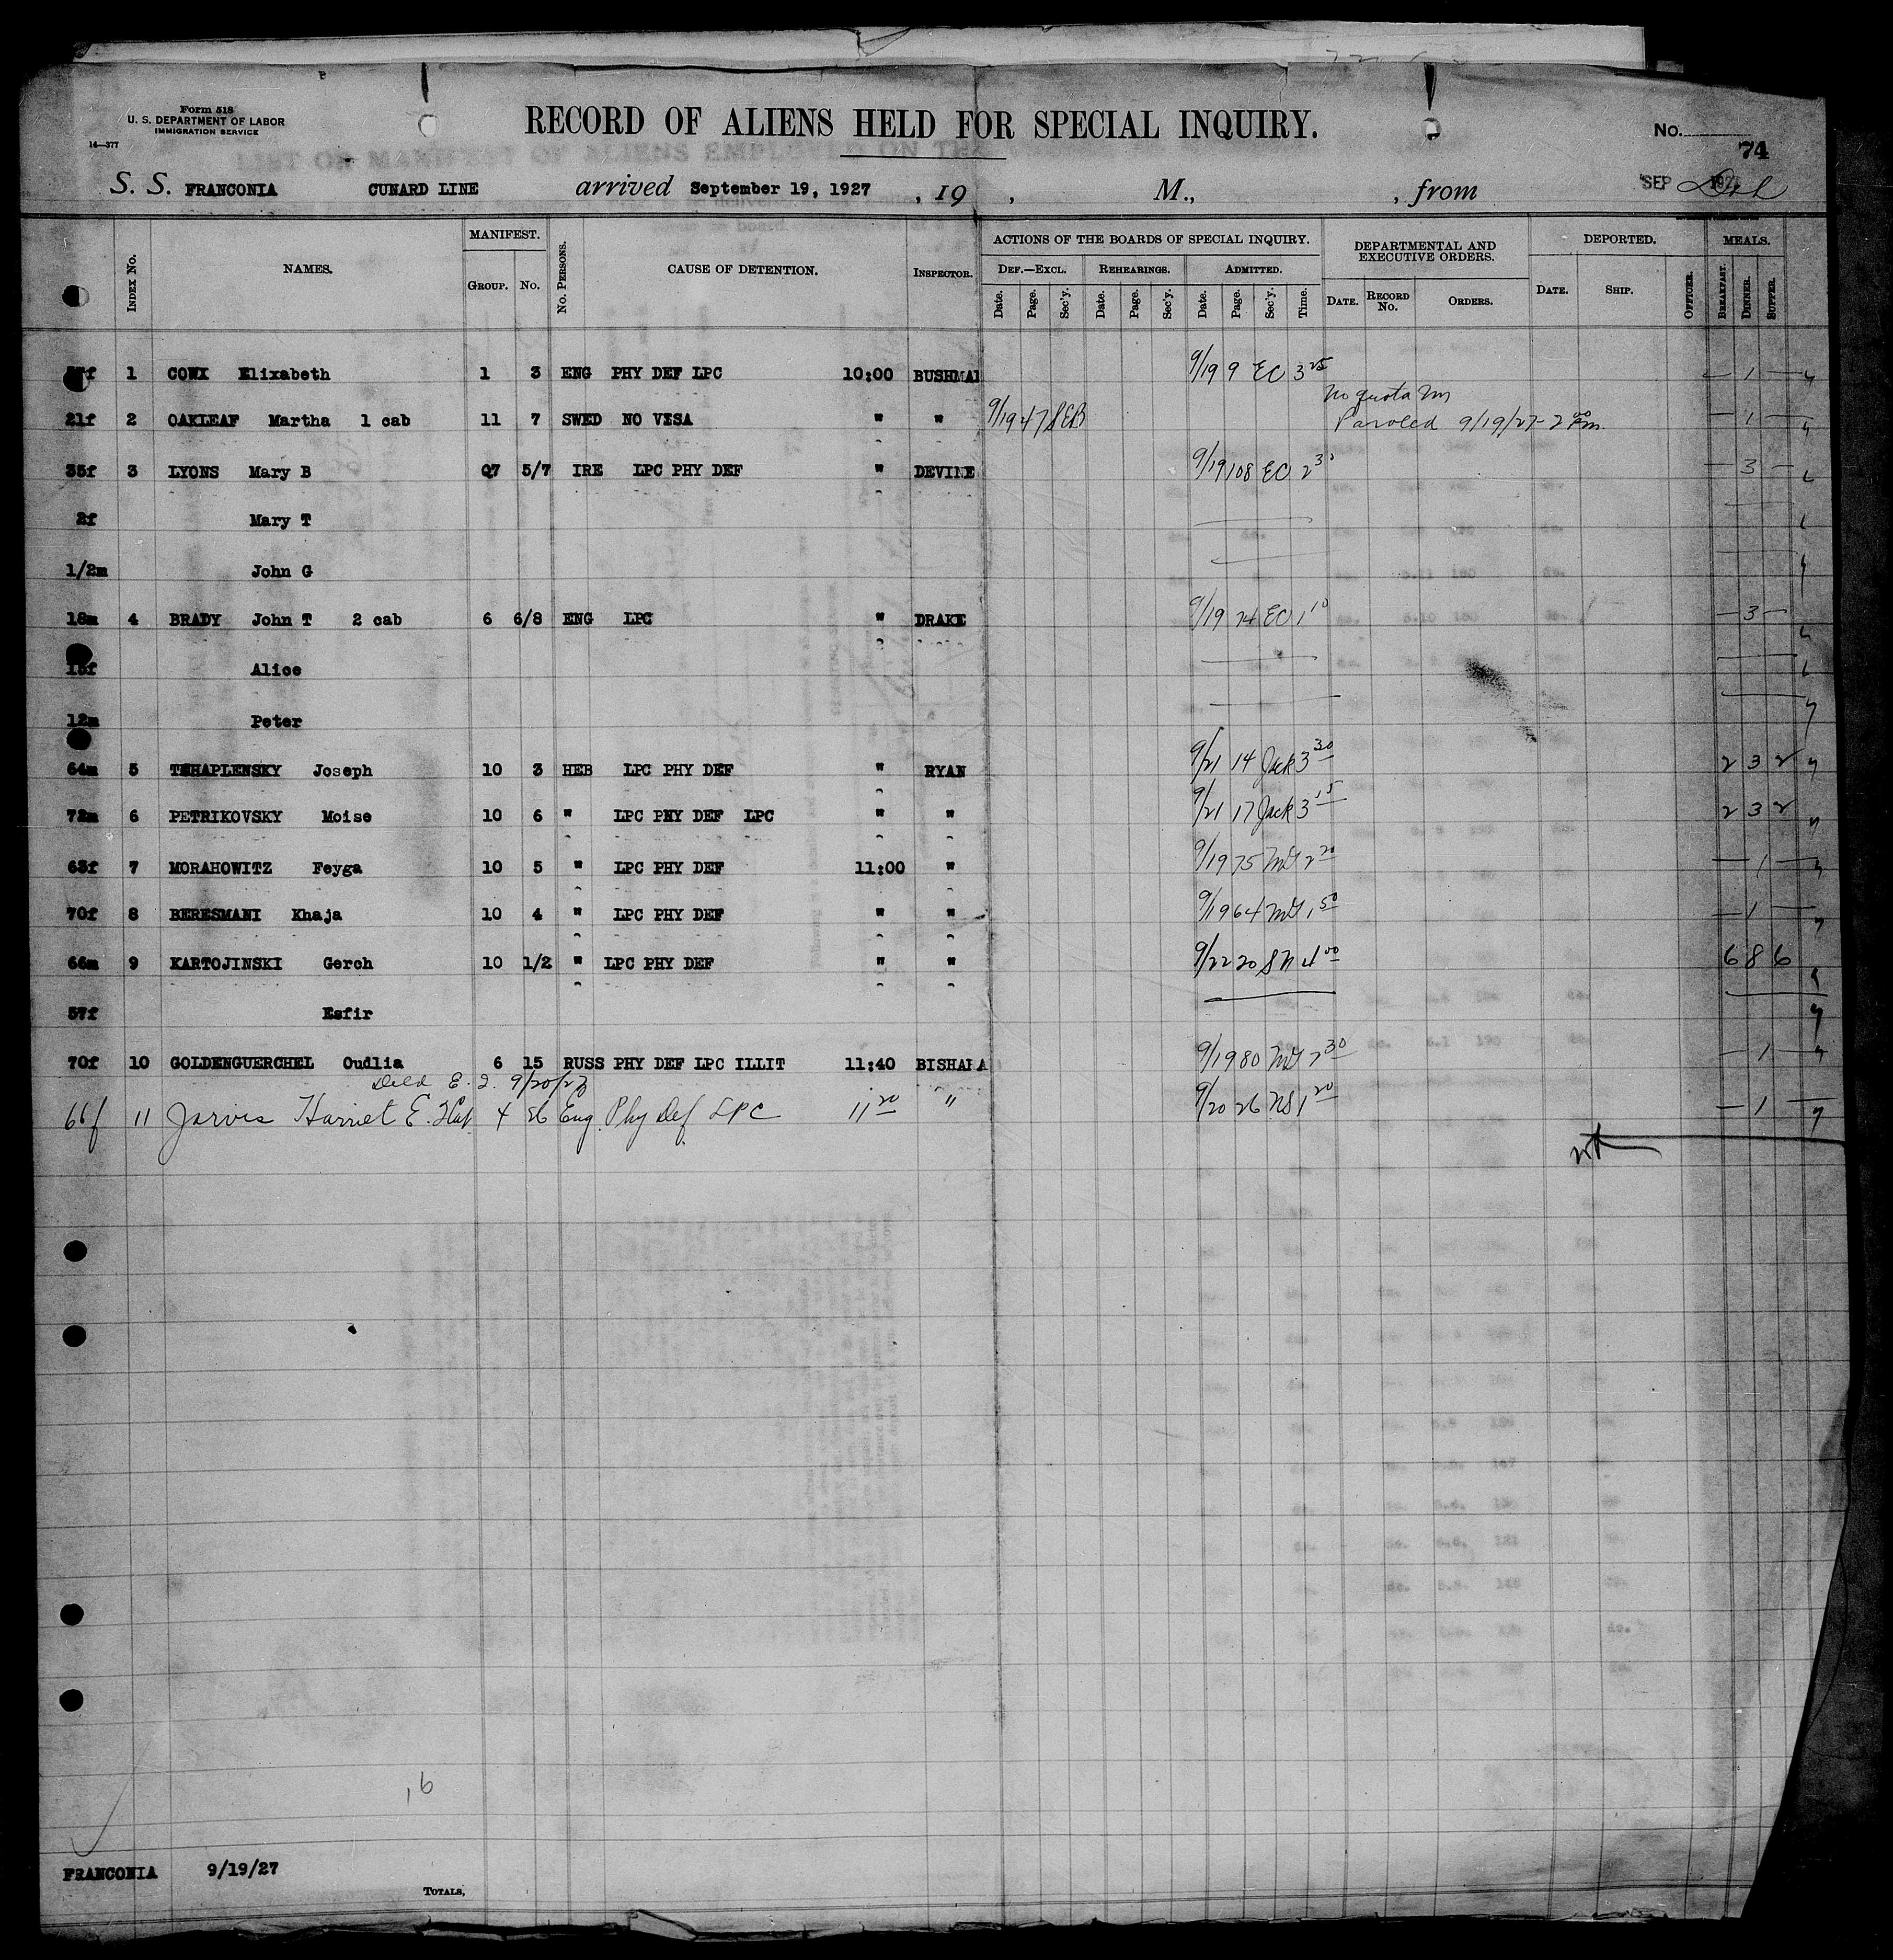 Form 518
U. S. DEPARTMENT OF LABOR
IMMIGRATION SERVICE
14—377
RECORD OF ALIENS HELD FOR SPECIAL INQUIRY.
No.
74
S. S. FRANCONIA CUNARD LINE arrived September 19, 1927 , 19 , M., , from SEP 1927
INDEX No. NAMES. MANIFEST. GROUP. NO. No. PERSONS. CAUSE OF DETENTION. INSPECTOR. ACTIONS OF THE BOARDS OF SPECIAL INQUIRY. DEF.—EXCL. Date. Page. Sec'y. REHEARINGS. Date. Page. Sec'y. ADMITTED. Date. Page. Sec'y. Time. DEPARTMENTAL AND EXECUTIVE ORDERS. DATE. RECORD No. ORDERS. DEPORTED. DATE. SHIP. OFFICER. MEALS. BREAKFAST. DINNER. SUPPER.
1 COWX Elixabeth 1 3 ENG PHY DEF LPC 10:00 BUSHMAN 9/19 9 EC 3 25 — 1 —
No quota Im
21f 2 OAKLEAF Martha 1 cab 11 7 SWED NO VISA " " 9/19 47 SEB Paroled 9/19/27 - 2 00 Pm. — 1 —
35f 3 LYONS Mary B Q7 5/7 IRE LPC PHY DEF " DEVINE 9/19 108 EC — 3 —
2f Mary T
1/2m John G
18m 4 BRADY John T 2 cab 6 6/8 ENG LPC " DRAKE 9/19 74 EC 1 10 — 3 —
15f Alice
12m Peter
64m 5 TEHAPLENSKY Joseph 10 3 HEB LPC PHY DEF " RYAN 9/21 14 Jack 3 30 2 3 2
72m 6 PETRIKOVSKY Moise 10 6 " LPC PHY DEF LPC " " 9/21 17 Jack 3 15 2 3 2
63f 7 MORAHOWITZ Feyga 10 5 " LPC PHY DEF 11:00 " 9/19 75 2 20 — 1 —
70f 8 BERESMANI Khaja 10 4 " LPC PHY DEF " " 9/19 64 1 50 — 1 —
66m 9 KARTOJINSKI Gerch 10 1/2 " LPC PHY DEF " " 9/22 20 SN 4 00 6 8 6
57f Esfir
70f 10 GOLDENGUERCHEL Oudlia 6 15 RUSS PHY DEF LPC ILLIT 11:40 BISHALA 9/19 80 2 30 — 1 —
9/20/27
66f 11 Jarvis Harriet E. 4 26 Eng Phy Def LPC 11 20 " 9/20 26 NS 1 20 — 1 —
16
FRANCONIA 9/19/27
TOTALS,